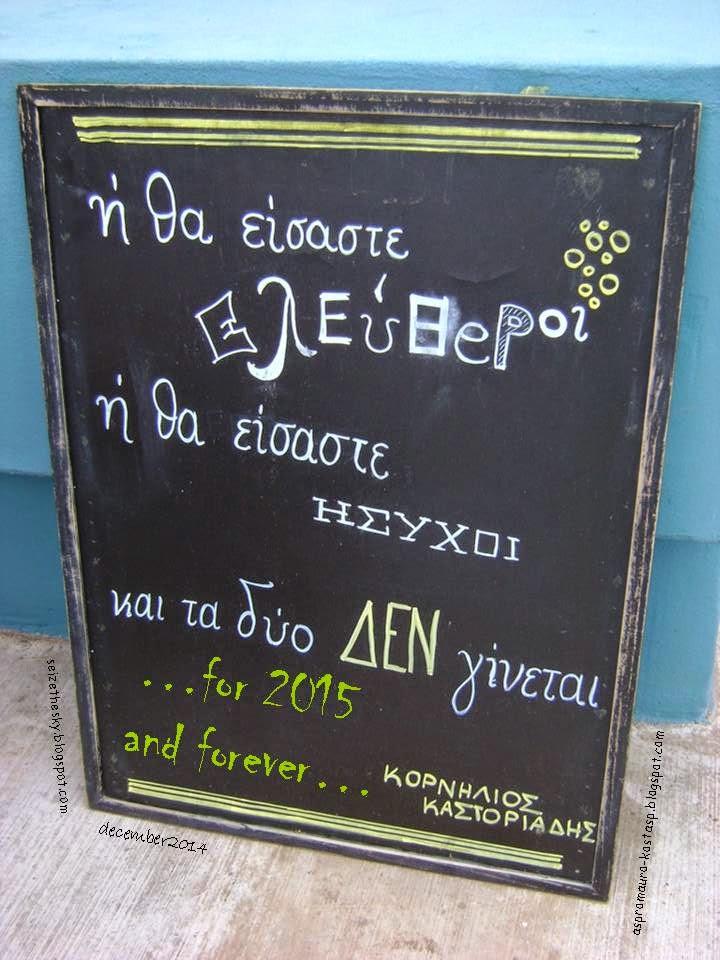 ή θα είσαστε
ΕλΕύΘερΟΙ
ή θα είσαστε
ΗΣΥΧΟΙ
και τα δύο ΔΕΝ γίνεται
...for 2015
and forever...
ΚΟΡΝΗΛΙΟΣ
ΚΑΣΤΟΡΙΑΔΗΣ
december2014
seizethesky.blogspot.com
aspramaura-kastasp.blogspot.com